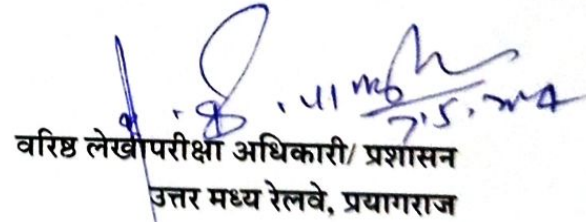 वरिष्ठ लेखापरीक्षा अधिकारी/ प्रशासन
उत्तर मध्य रेलवे, प्रयागराज